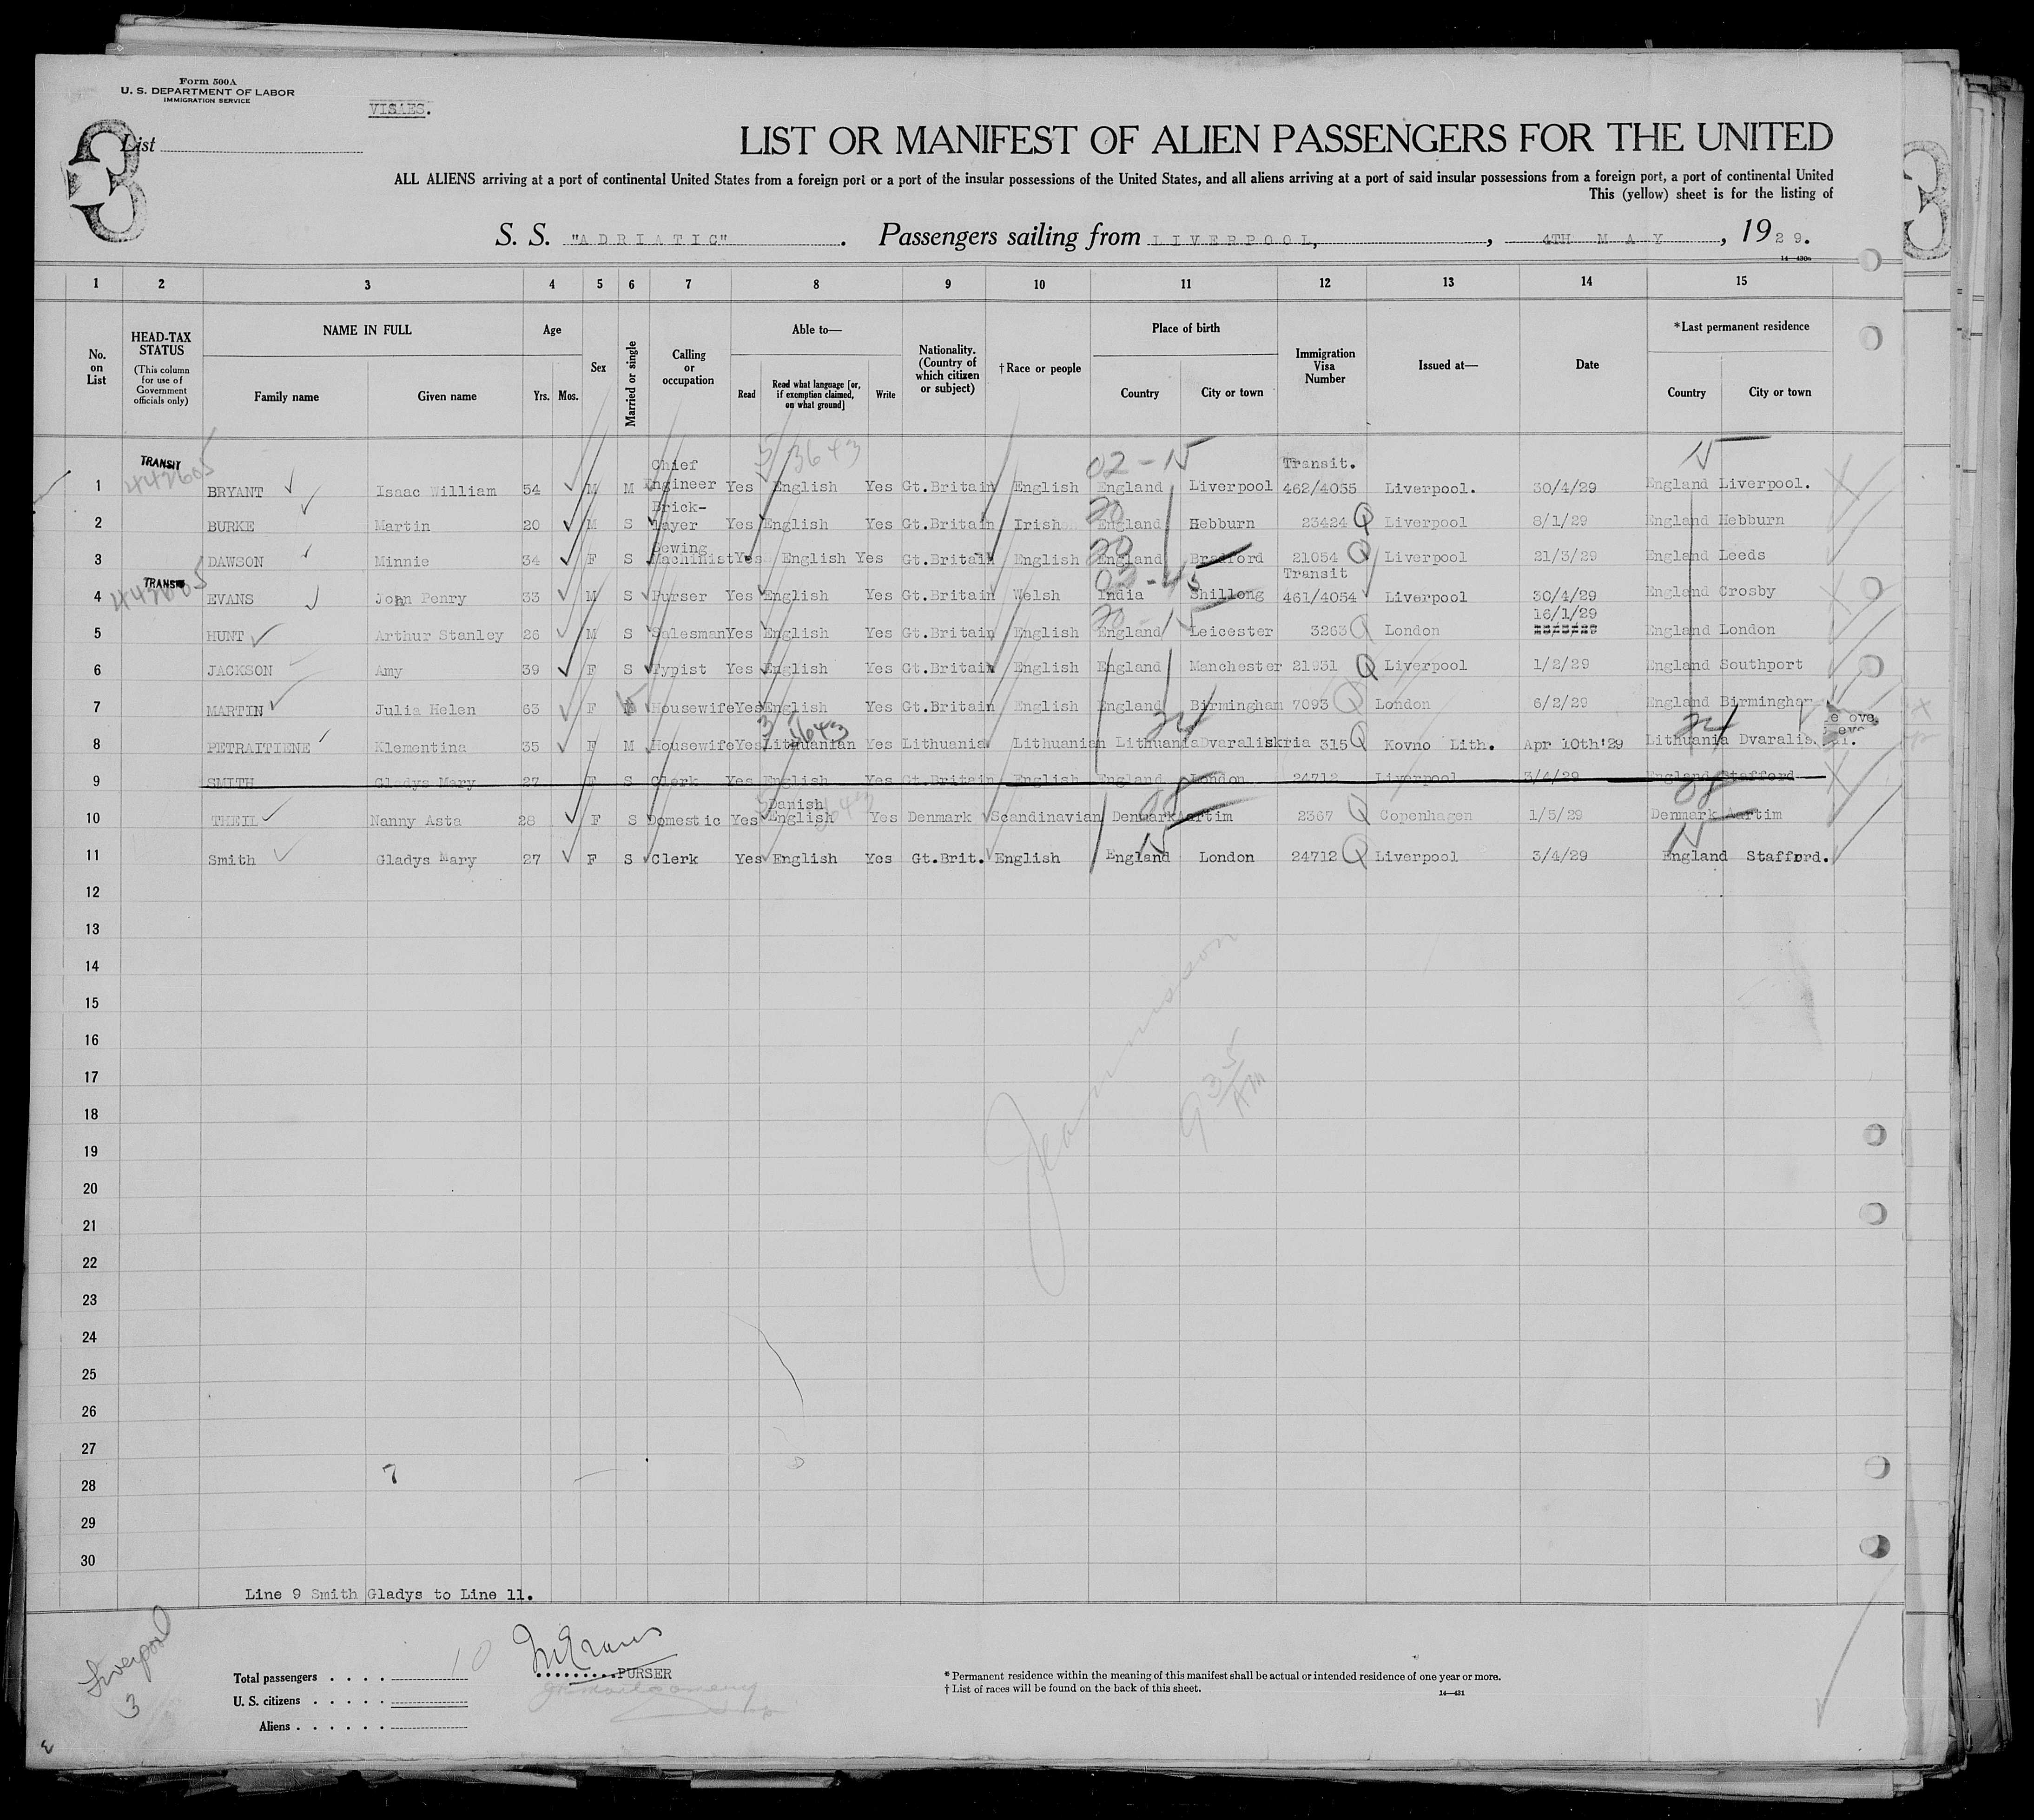 Form 500A
U. S. DEPARTMENT OF LABOR
IMMIGRATION SERVICE
VISAES.
3
List
LIST OR MANIFEST OF ALIEN PASSENGERS FOR THE UNITED
ALL ALIENS arriving at a port of continental United States from a foreign port or a port of the insular possessions of the United States, and all aliens arriving at a port of said insular possessions from a foreign port, a port of continental United
This (yellow) sheet is for the listing of
S. S. "ADRIATIC" . Passengers sailing from LIVERPOOL, , 4TH MAY , 1929.
14—430a
1 2 3 4 5 6 7 8 9 10 11 12 13 14 15
No. on List
HEAD-TAX STATUS
(This column for use of Government officials only)
NAME IN FULL
Family name Given name
Age
Yrs. Mos.
Sex
Married or single
Calling or occupation
Able to—
Read
Read what language [or, if exemption claimed, on what ground]
Write
Nationality. (Country of which citizen or subject)
†Race or people
Place of birth
Country City or town
Immigration Visa Number
Issued at—
Date
*Last permanent residence
Country City or town
TRANSIT
1 BRYANT Isaac William 54 M M Chief Engineer Yes English Yes Gt.Britain English England Liverpool Transit. 462/4035 Liverpool. 30/4/29 England Liverpool.
2 BURKE Martin 20 M S Brick-layer Yes English Yes Gt.Britain Irish England Hebburn 23424 Q Liverpool 8/1/29 England Hebburn
3 DAWSON Minnie 34 F S Sewing Machinist Yes English Yes Gt.Britain English England Bradford 21054 Q Liverpool 21/3/29 England Leeds
TRANSIT
4 EVANS John Penry 33 M S Purser Yes English Yes Gt.Britain Welsh India Shillong Transit 461/4054 Liverpool 30/4/29 England Crosby
5 HUNT Arthur Stanley 26 M S Salesman Yes English Yes Gt.Britain English England Leicester 3263 Q London 16/1/29 England London
6 JACKSON Amy 39 F S Typist Yes English Yes Gt.Britain English England Manchester 21931 Q Liverpool 1/2/29 England Southport
7 MARTIN Julia Helen 63 F Housewife Yes English Yes Gt.Britain English England Birmingham 7093 Q London 6/2/29 England Birmingham
8 PETRAITIENE Klementina 35 F M Housewife Yes Lithuanian Yes Lithuania Lithuanian Lithuania 315 Q Kovno Lith. Apr 10th'29 Lithuania
9 SMITH Gladys Mary 27 F S Clerk Yes English Yes Gt.Britain English England London 24712 Liverpool 3/4/29 England Stafford
10 THEIL Nanny Asta 28 F S Domestic Yes Danish English Yes Denmark Scandinavian Denmark Aartim 2367 Q Copenhagen 1/5/29 Denmark Aartim
11 Smith Gladys Mary 27 F S Clerk Yes English Yes Gt.Brit. English England London 24712 Q Liverpool 3/4/29 England Stafford.
12
13
14
15
16
17
18
19
20
21
22
23
24
25
26
27
7
28
29
30
Line 9 Smith Gladys to Line 11.
Liverpool
3
Total passengers . . . . 10
U. S. citizens . . . . .
Aliens . . . . . .
PURSER
* Permanent residence within the meaning of this manifest shall be actual or intended residence of one year or more.
† List of races will be found on the back of this sheet.
14—431